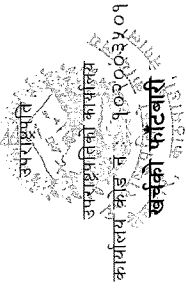 उपराष्ट्रपति
उपराष्ट्रपतिको कार्यालय
कार्यालय कोड नं. १०२००३५०१
खर्चको फाँटवारी